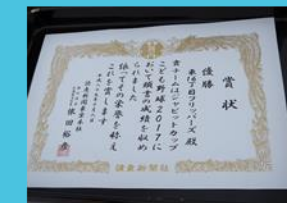 賞状
優勝
東16丁目フリッパーズ殿
貴チームはジャビットカップ
こども野球2017に
おいて頭書の成績を収め
られました
依ってその栄誉を称え
これを賞します
読売新聞社